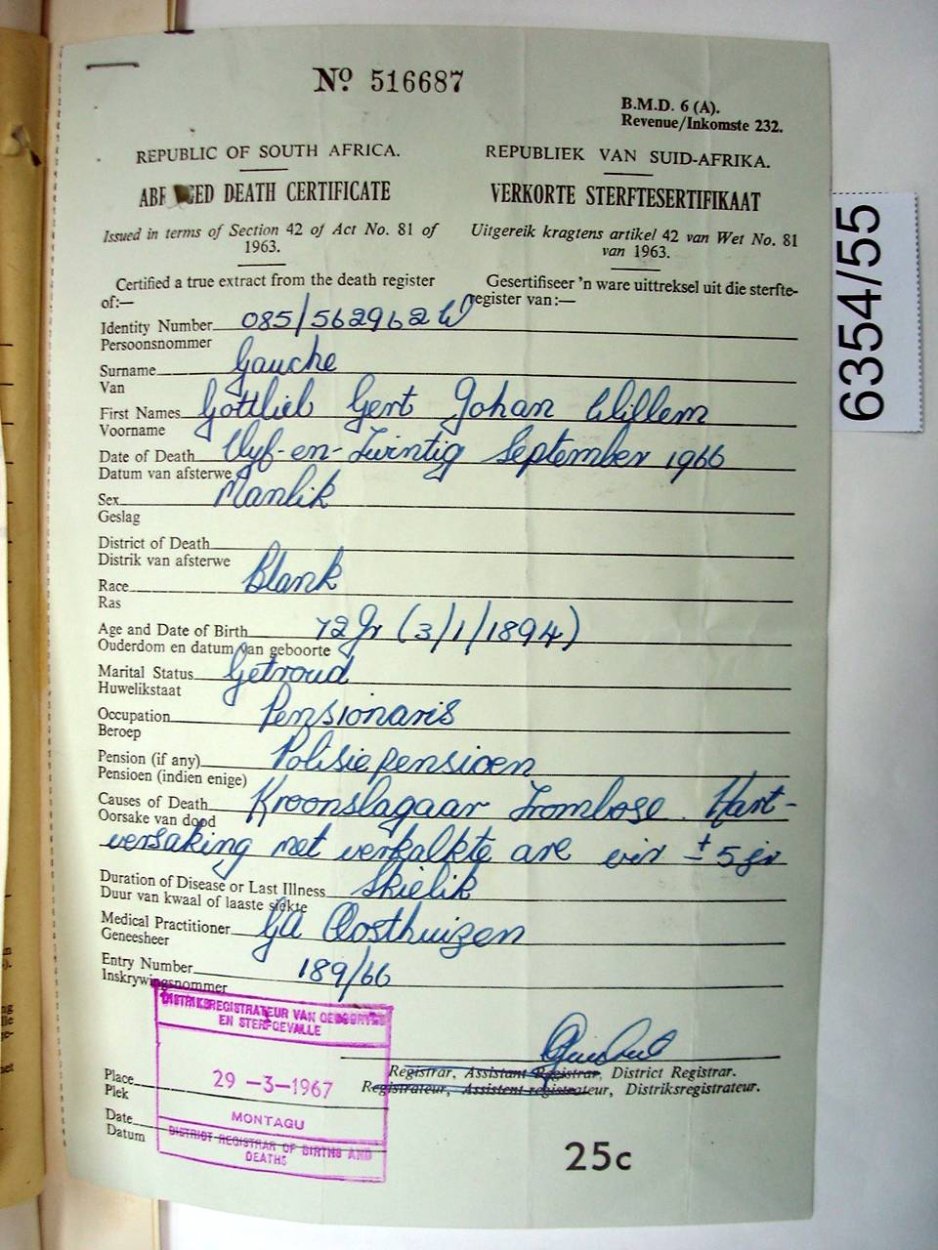 Nº 516687
B.M.D. 6 (A).
Revenue/Inkomste 232.
REPUBLIC OF SOUTH AFRICA.
REPUBLIEK VAN SUID-AFRIKA.
DEATH CERTIFICATE
VERKORTE STERFTESERTIFIKAAT
Issued in terms of Section 42 of Act No. 81 of
1963.
Uitgereik kragtens artikel 42 van Wet No. 81
van 1963.
Certified a true extract from the death register
of:—
Gesertifiseer 'n ware uittreksel uit die sterfte-
register van:—
6354/55
Identity Number 085/562962 W
Persoonsnommer
Surname Gauche
Van
First Names Gottlieb Gert Johan Willem
Voorname
Date of Death Vyf-en-Twintig September 1966
Datum van afsterwe
Sex Manlik
Geslag
District of Death
Distrik van afsterwe
Race Blank
Ras
Age and Date of Birth 72 Jr (3/1/1894)
Ouderdom en datum van geboorte
Marital Status Getroud
Huwelikstaat
Occupation Pensionaris
Beroep
Pension (if any) Polisiepensioen
Pensioen (indien enige)
Causes of Death Kroonslagaar Trombose. Hart-
Oorsake van dood
versaking met verkalkte are vir ± 5 jr
Duration of Disease or Last Illness Skielik
Duur van kwaal of laaste siekte
Medical Practitioner GA Oosthuizen
Geneesheer
Entry Number 189/66
Inskrywingsnommer
DISTRIKSREGISTRATEUR VAN GEBOORTES
EN STERFGEVALLE
Registrar, Assistant Registrar, District Registrar.
Registrateur, Assistent-registrateur, Distriksregistrateur.
Place
Plek
29 -3-1967
MONTAGU
Date
Datum
DISTRICT REGISTRAR OF BIRTHS AND
DEATHS
25c